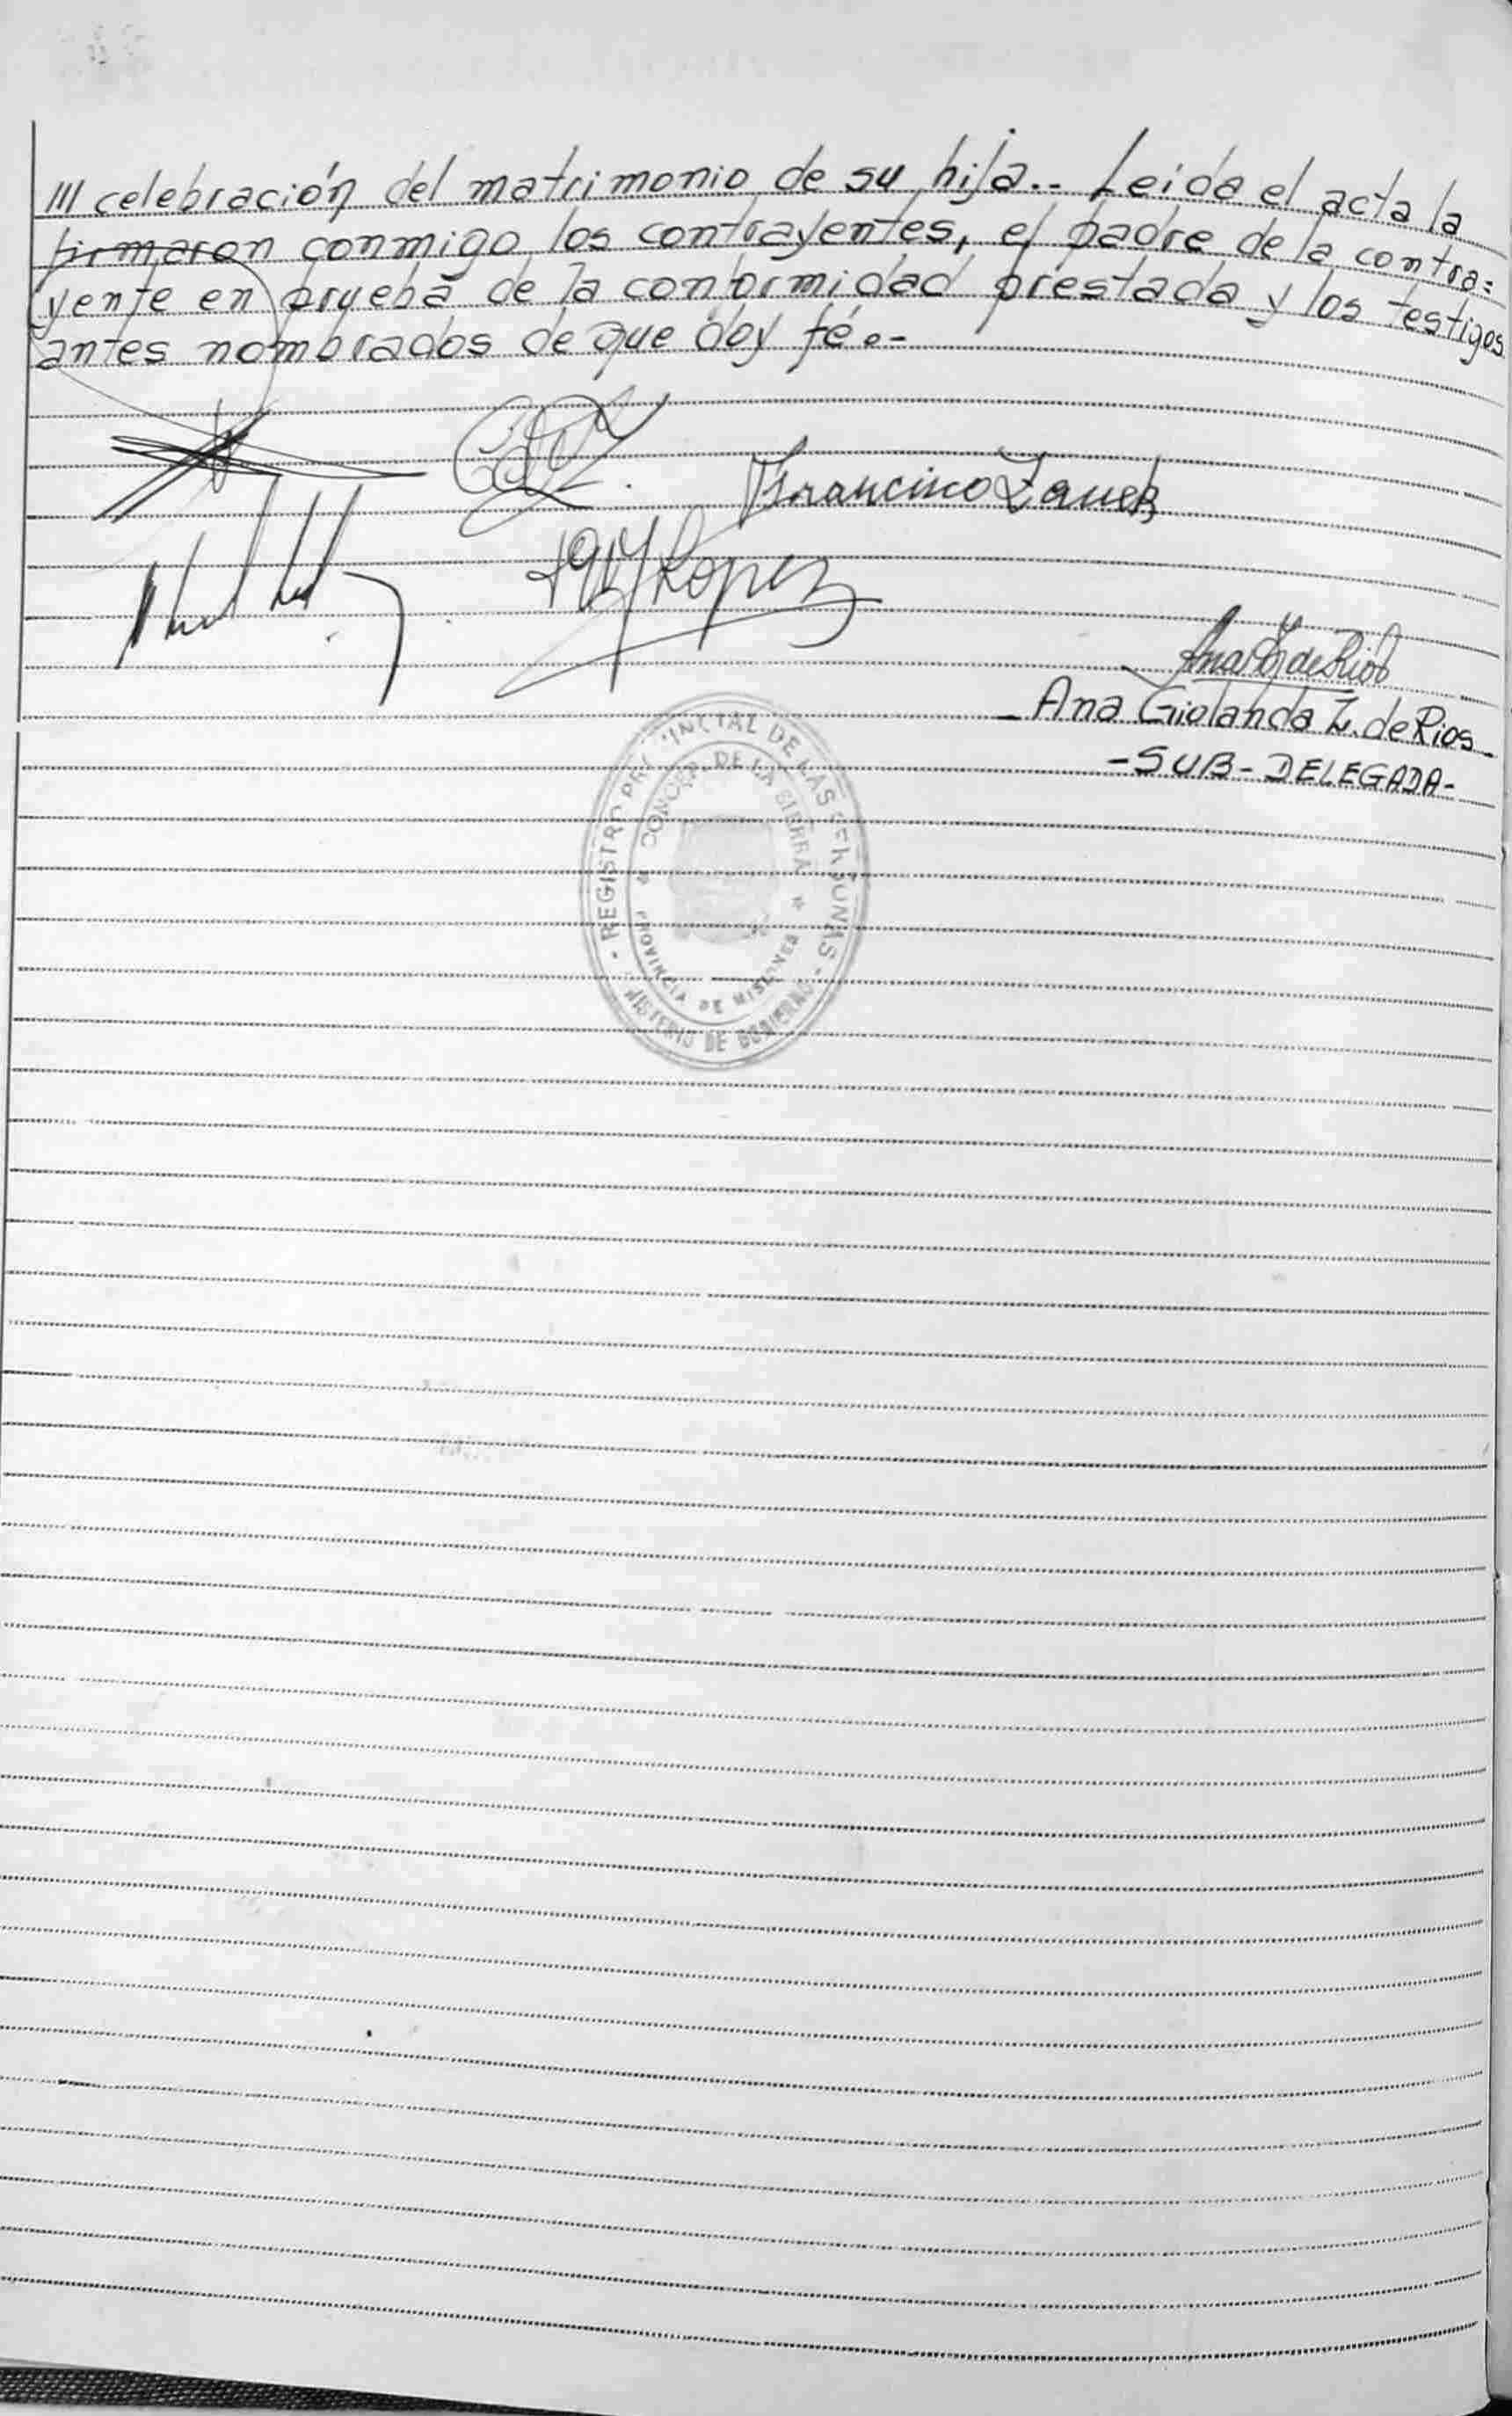 /// celebración del matrimonio de su hija.- Leida el acta la
firmaron conmigo los contrayentes, el padre de la contra=
yente en prueba de la conformidad prestada y los testigos
antes nombrados de que doy fé.-
Francisco
Lopez
Ana de Rios
- Ana Giolanda Z. de Rios -
- SUB - DELEGADA -
- REGISTRO PROVINCIAL DE LAS PERSONAS -
CONCEP. DE LA SIERRA
PROVINCIA DE MISIONES
MINISTERIO DE GOBIERNO